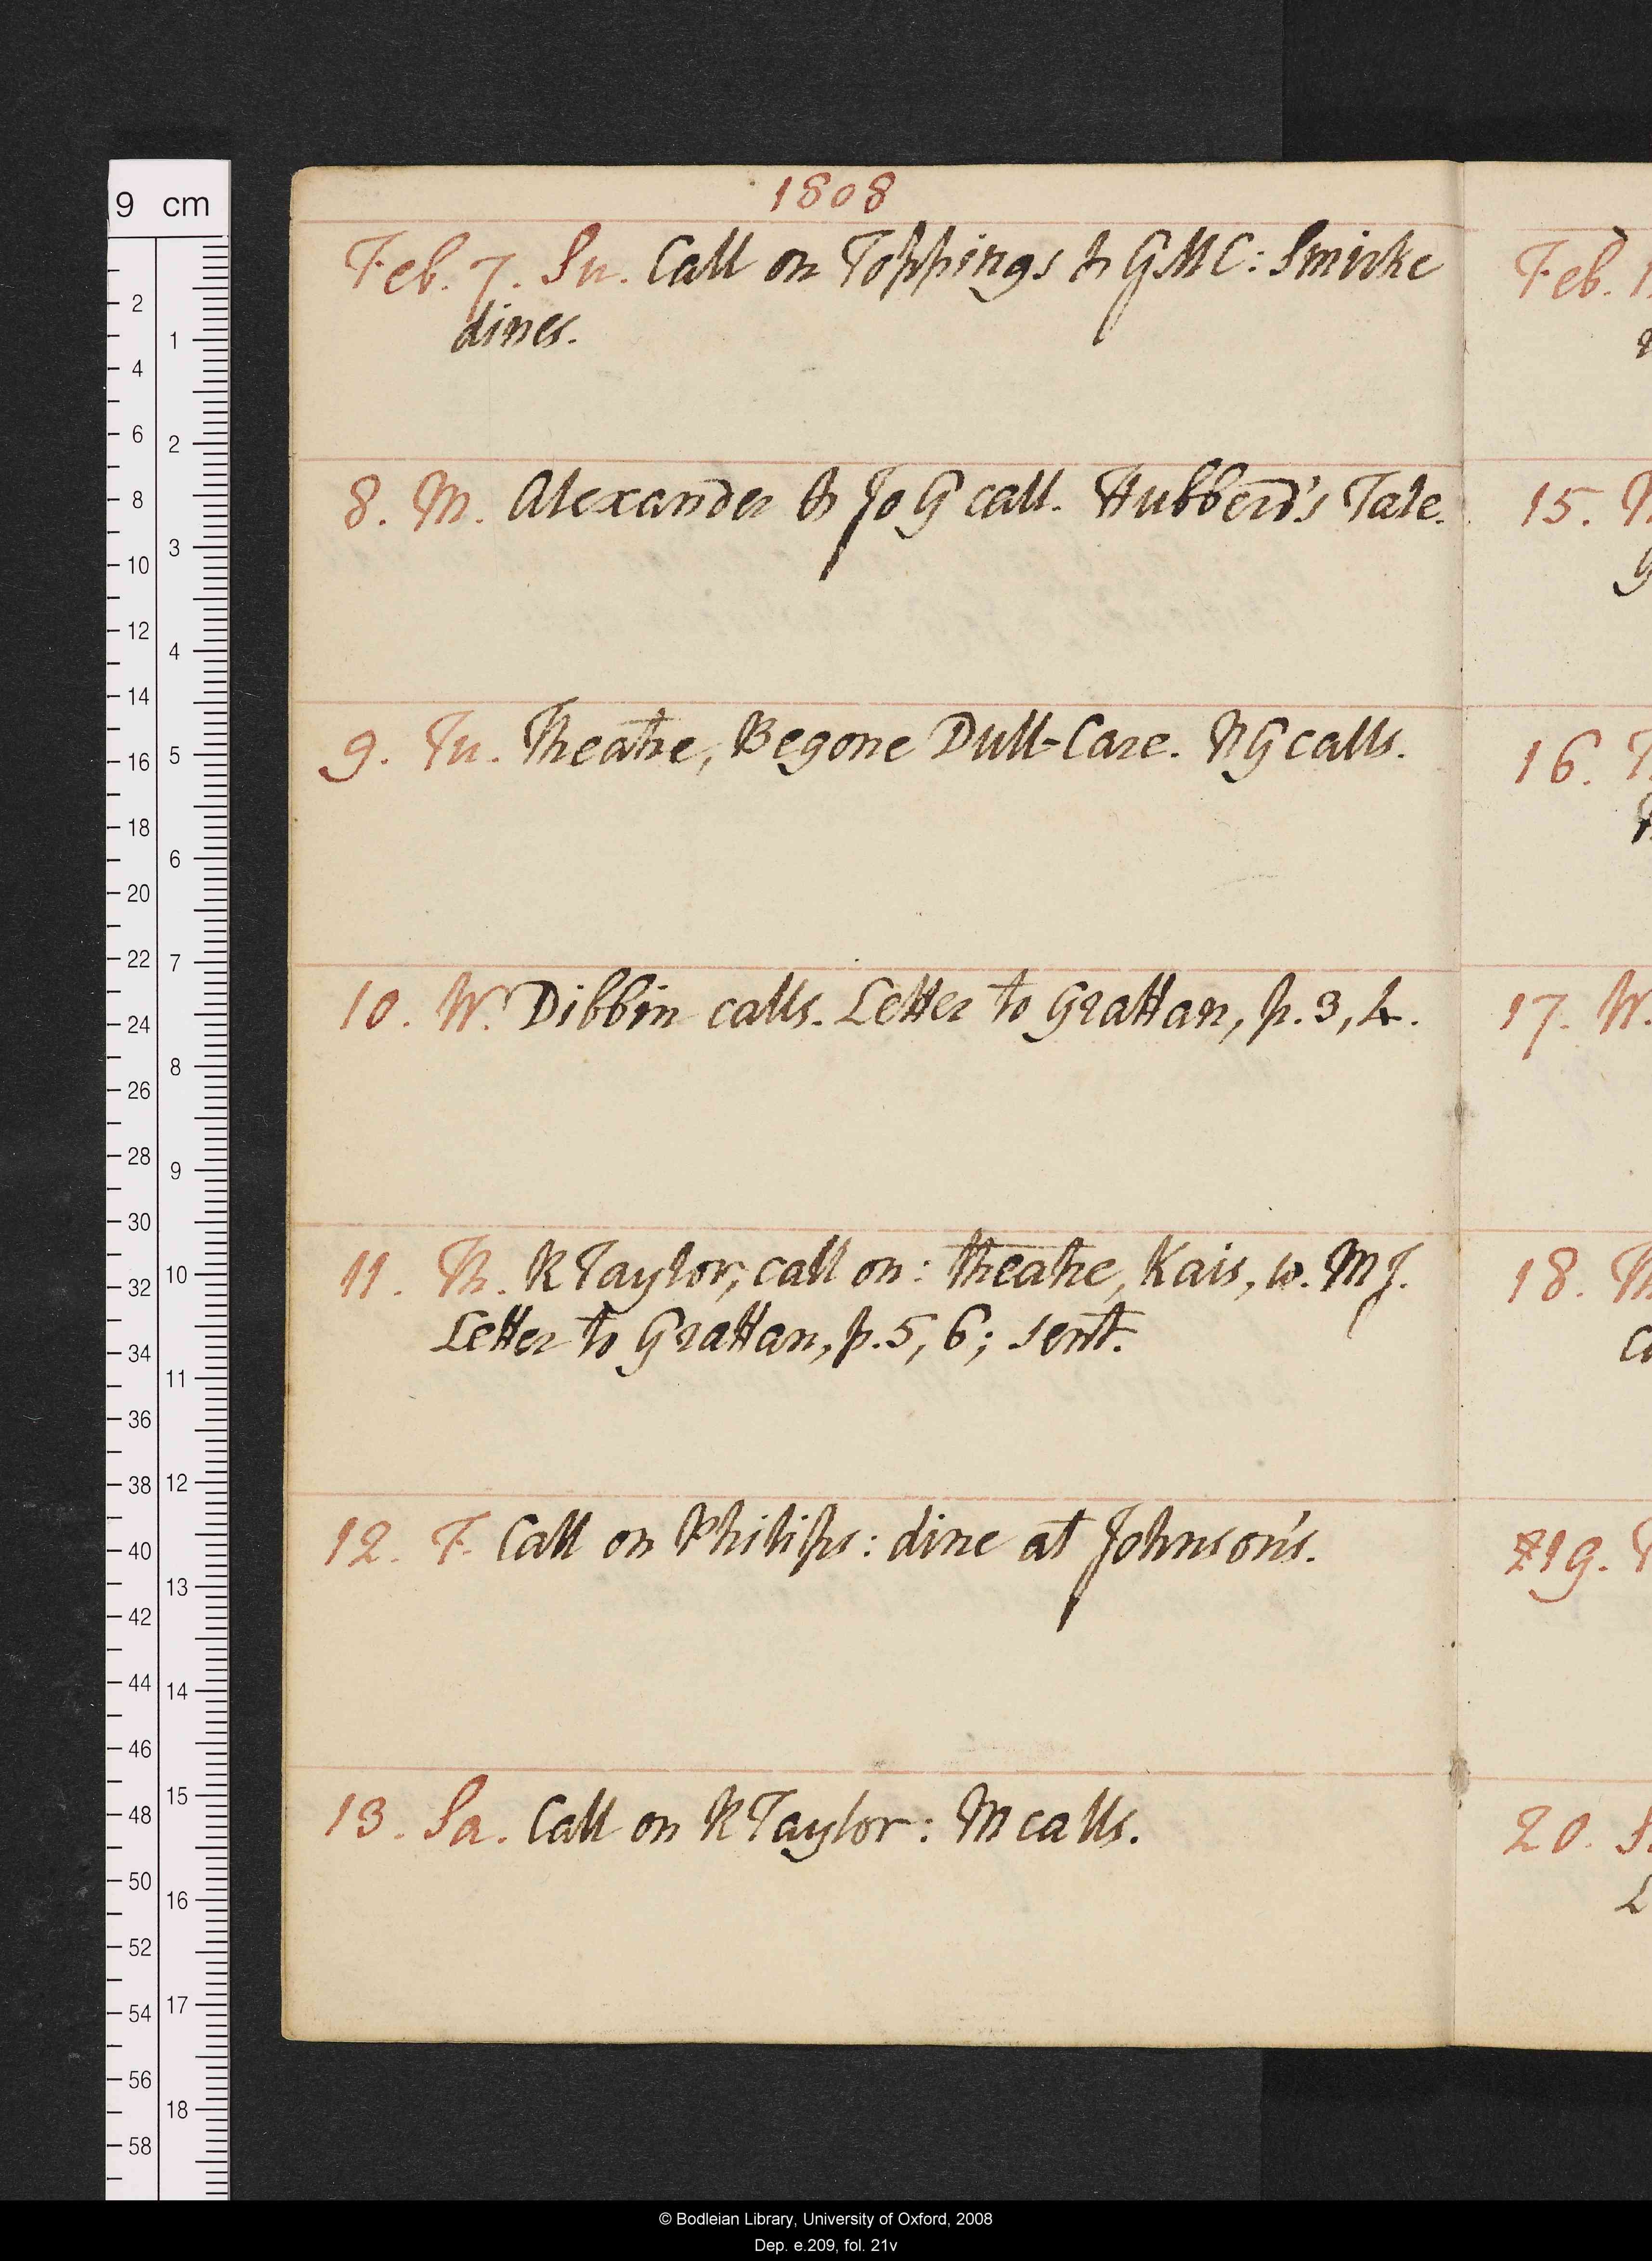 1808
Feb. 7. Su. Call on Toppings & GMC: Smirke
dines.
8. M. Alexander & Jo G call. Hubberd's Tale.
9. Tu. Theatre, Begone Dull-Care. N G calls.
10. W. Dibbin calls. Letter to Grattan, p. 3, 4.
11. Th. R Taylor, call on: theatre, Kais, w. M J.
Letter to Grattan, p. 5, 6; sent.
12. F. Call on Philips: dine at Johnson's.
13. Sa. Call on R Taylor: M calls.
Feb. 1
15.
16.
17. W.
18. Th
19.
20.
9 cm
2
4
6
8
10
12
14
16
18
20
22
24
26
28
30
32
34
36
38
40
42
44
46
48
50
52
54
56
58
1
2
3
4
5
6
7
8
9
10
11
12
13
14
15
16
17
18
© Bodleian Library, University of Oxford, 2008
Dep. e.209, fol. 21v